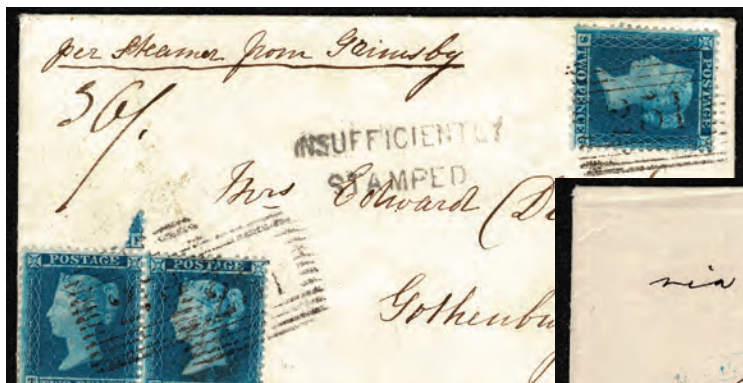 per Steamer from Grimsby
INSUFFICIENTLY
STAMPED
Mrs Edward (D
Gothenbu
via
POSTAGE
TWO PENCE
POSTAGE
POSTAGE